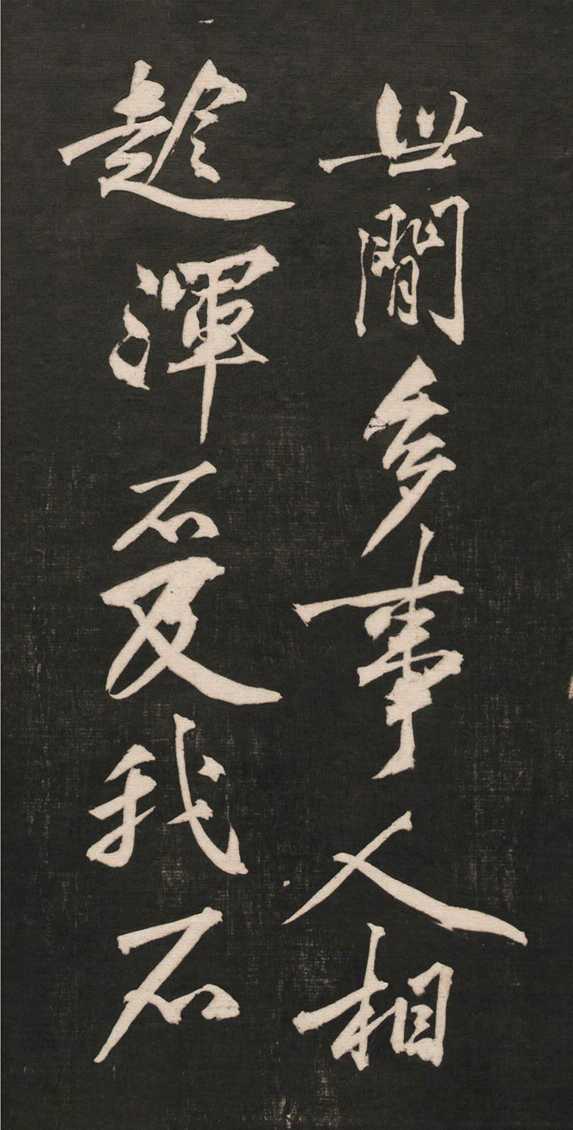 世間多事人相
趁渾不及我石